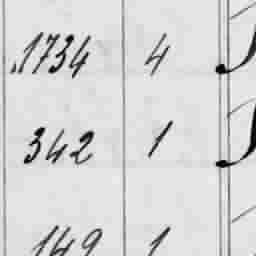 1734 4
342 1
149 1